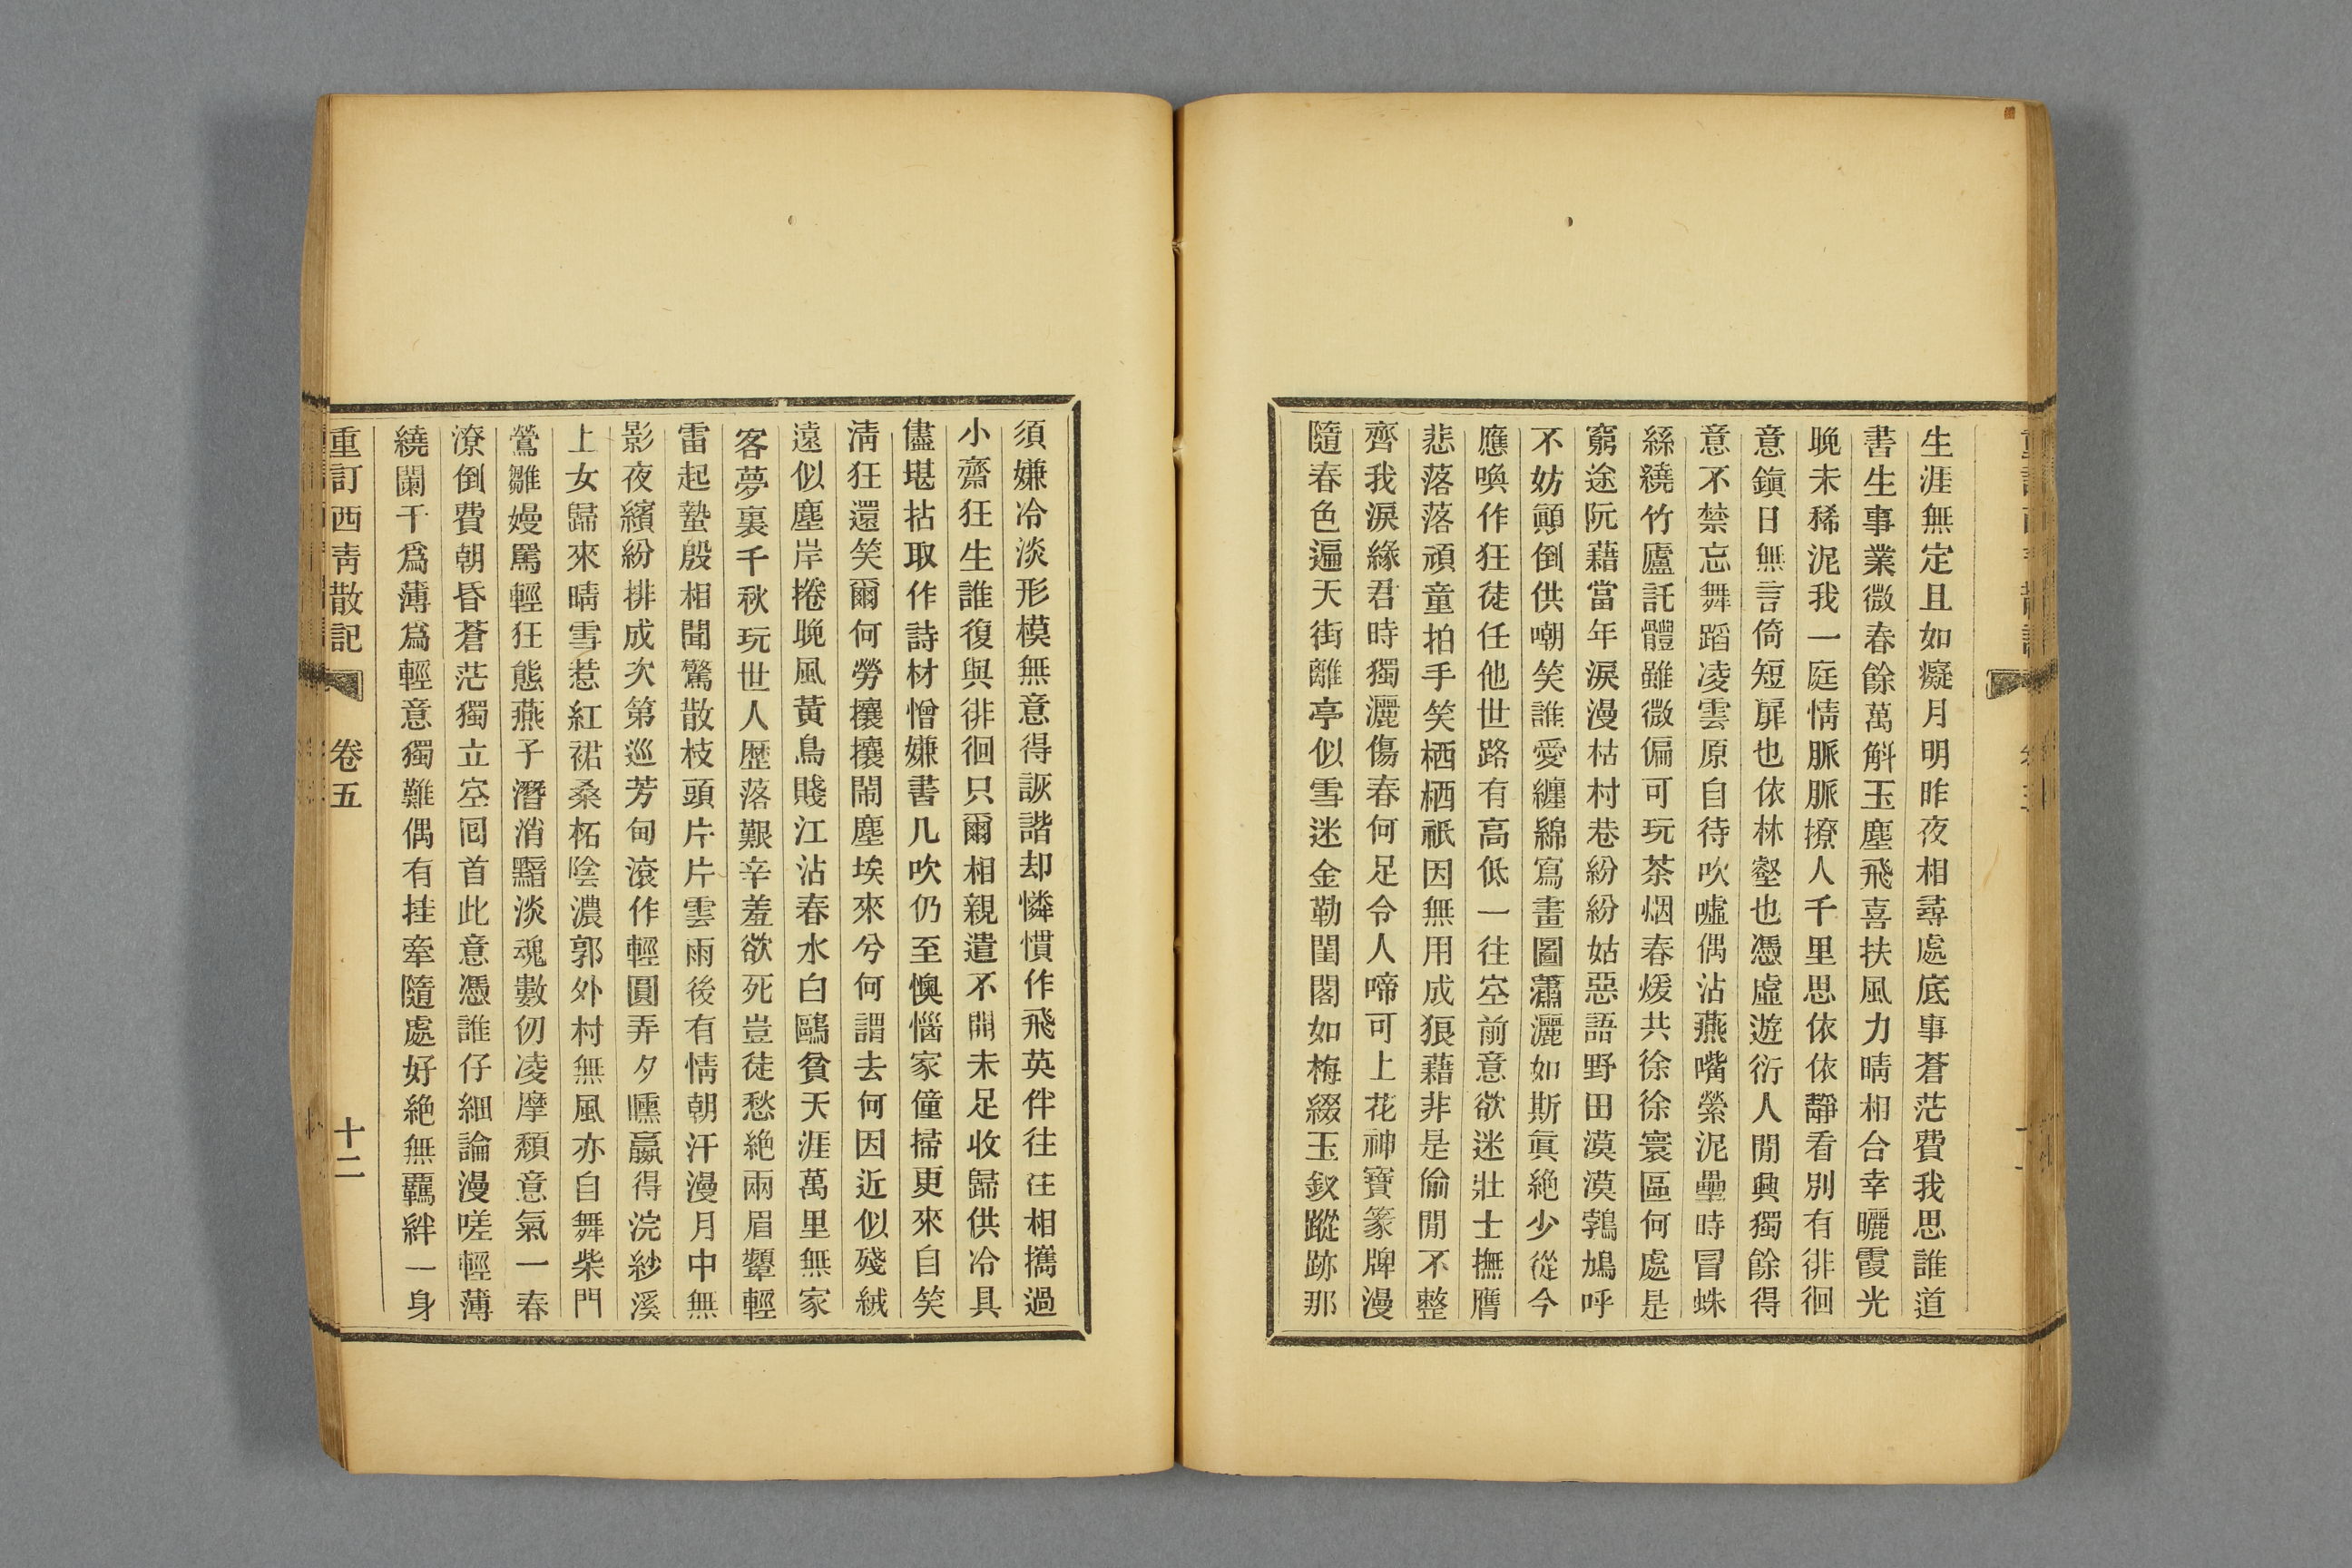 生涯無定且如癡月明昨夜相尋處底事蒼茫費我思誰道
書生事業微春餘萬斛玉塵飛喜扶風力晴相合幸曬霞光
晚未稀泥我一庭情脈脈撩人千里思依依靜看別有徘徊
意鎭日無言倚短扉也依林壑也憑虛遊衍人閒興獨餘得
意不禁忘舞蹈凌雲原自待吹噓偶沾燕嘴縈泥壘時冒蛛
絲繞竹廬託體雖微偏可玩茶烟春煖共徐徐寰區何處是
窮途阮藉當年淚漫枯村巷紛紛姑惡語野田漠漠鵓鳩呼
不妨顚倒供嘲笑誰愛纏綿寫畫圖瀟灑如斯眞絶少從今
應喚作狂徒任他世路有高低一往空前意欲迷壯士撫膺
悲落落頑童拍手笑栖栖祇因無用成狼藉非是偷閒不整
齊我淚緣君時獨灑傷春何足令人啼可上花神寶篆牌漫
隨春色遍天街離亭似雪迷金勒閨閣如梅綴玉釵蹤跡那
須嫌冷淡形模無意得詼諧却憐慣作飛英伴往往相攜過
小齋狂生誰復與徘徊只爾相親遣不開未足收歸供冷具
儘堪拈取作詩材憎嫌書几吹仍至懊惱家僮掃更來自笑
淸狂還笑爾何勞攘攘鬧塵埃來兮何謂去何因近似殘絨
遠似塵岸捲晚風黃鳥賤江沾春水白鷗貧天涯萬里無家
客夢裏千秋玩世人歷落艱辛羞欲死豈徒愁絶兩眉顰輕
雷起蟄殷相聞驚散枝頭片片雲雨後有情朝汗漫月中無
影夜繽紛排成次第巡芳甸滾作輕圓弄夕曛贏得浣紗溪
上女歸來晴雪惹紅裙桑柘陰濃郭外村無風亦自舞柴門
鶯雛嫚罵輕狂態燕子潛消黯淡魂數仞凌摩頹意氣一春
潦倒費朝昏蒼茫獨立空囘首此意憑誰仔細論漫嗟輕薄
繞闌干爲薄爲輕意獨難偶有挂牽隨處好絶無羈絆一身
重訂西靑散記 卷五 十二